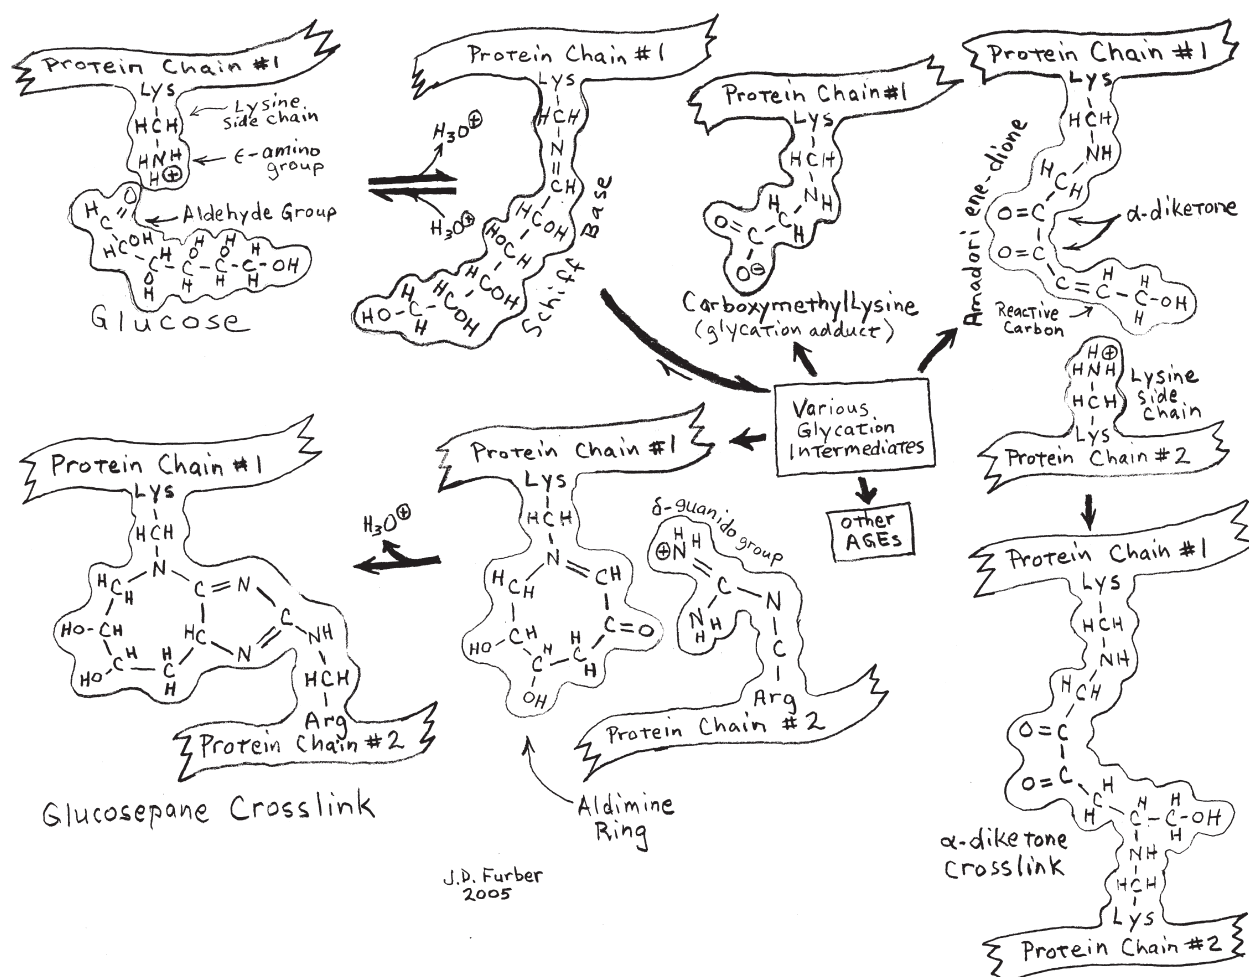 Protein Chain #1
Lys
HCH
HNH
H⊕
Lysine
side chain
ϵ-amino
group
O
H C
Aldehyde Group
H C OH
H H
O O
H H H H
C-C-C-C-OH
O H H H
H
Glucose
H3O⊕
H3O⊕
Protein Chain #1
Lys
HCH
N
CH
HCOH
HOCH
HCOH
HCOH
HO-CH
H
Schiff Base
Protein Chain #1
Lys
HCH
N
H
H
C
H
O=C
O⊖
CarboxymethylLysine
(glycation adduct)
Protein Chain #1
Lys
HCH
NH
H
CH
O=C
O=C
C=C-C-OH
H
H
Amadori ene-dione
α-diketone
Reactive
Carbon
H⊕
HNH
HCH
Lys
Lysine
side
chain
Protein Chain #2
Various
Glycation
Intermediates
other
AGEs
Protein Chain #1
Lys
HCH
N
HC
H
C=N
HO-CH
HC
C
NH
HO
CH
H
C
H
N
HCH
Arg
Protein Chain #2
Glucosepane Crosslink
H3O⊕
Protein Chain #1
Lys
HCH
N=CH
HC
H
C=O
HO
CH
C
H
H
C
H
OH
δ-guanido group
H H
⊕N
C
N
N H
H
C
Arg
Protein Chain #2
Aldimine
Ring
J.D. Furber
2005
Protein Chain #1
Lys
HCH
NH
H
CH
O=C
O=C
H
C
H
H H
C-C-OH
H
NH
HCH
Lys
Protein Chain #2
α-diketone
Crosslink